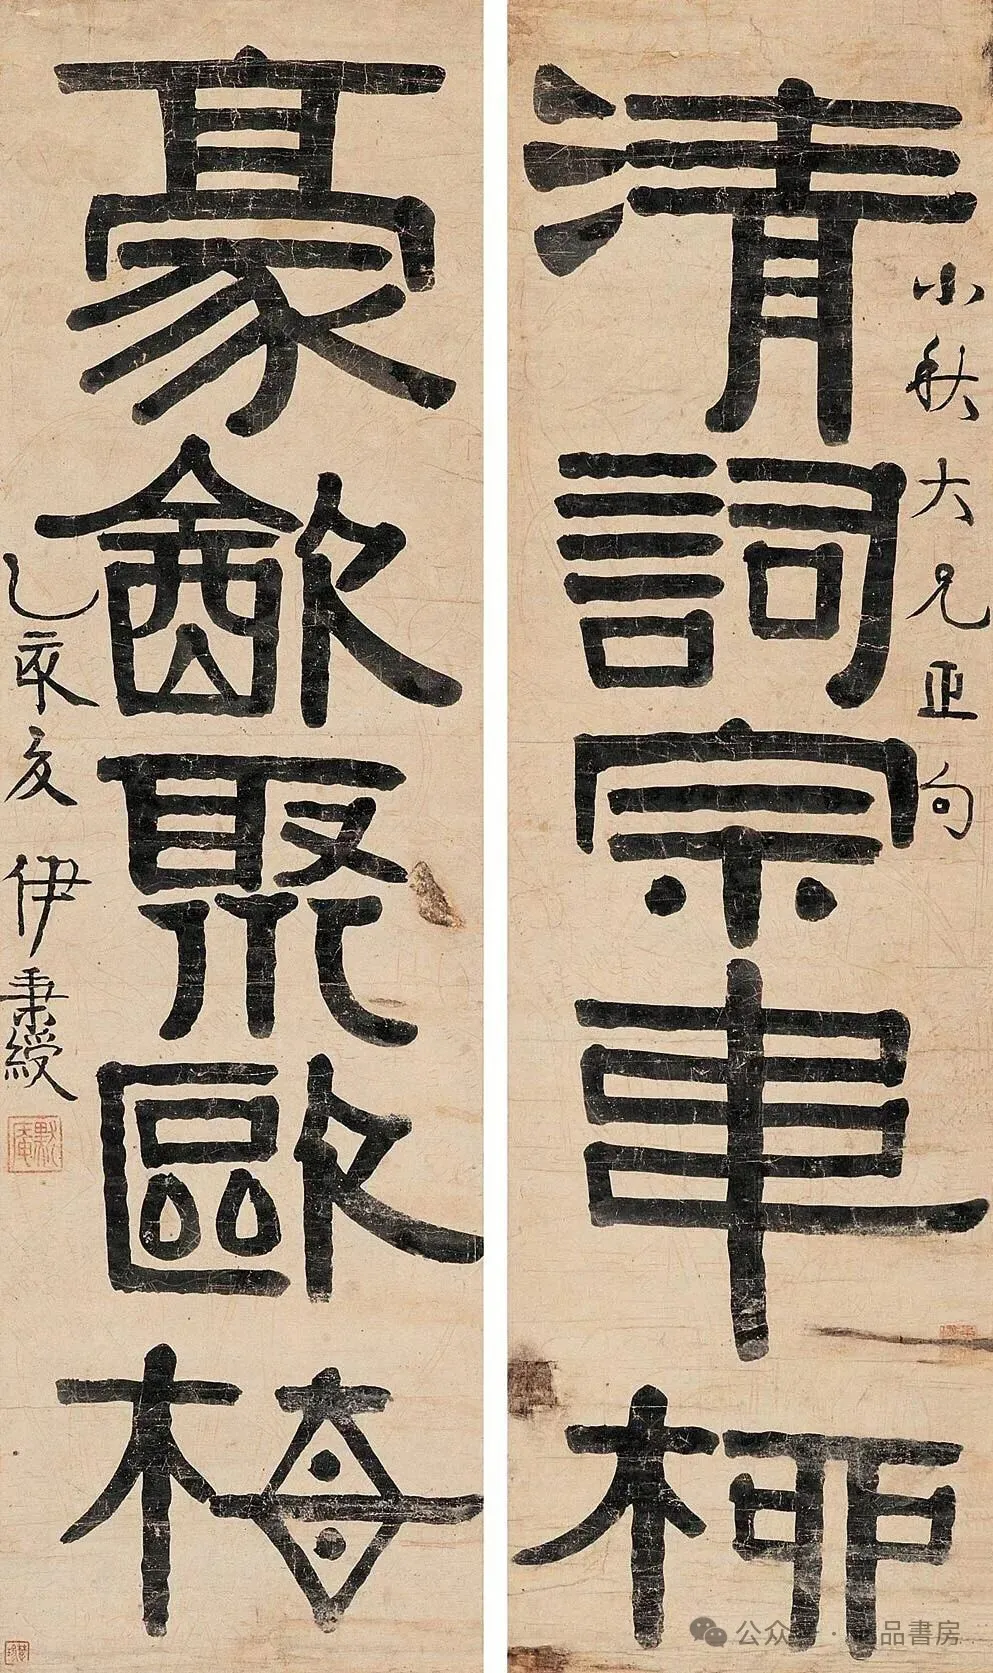 清詞宗韋柳
小秋大兄正句
豪飲聚歐梅
乙亥夏 伊秉綬
默庵
公众号 · 品書房